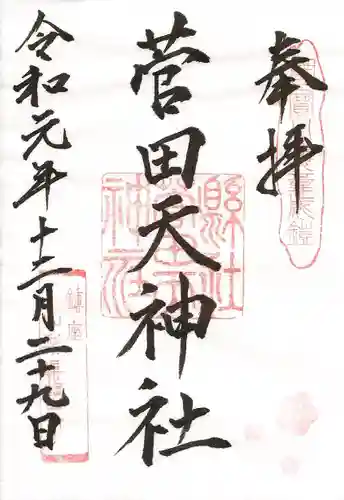 奉拝
菅田天神社
令和元年十二月二十九日
縣社
菅田天
神社
鎮座